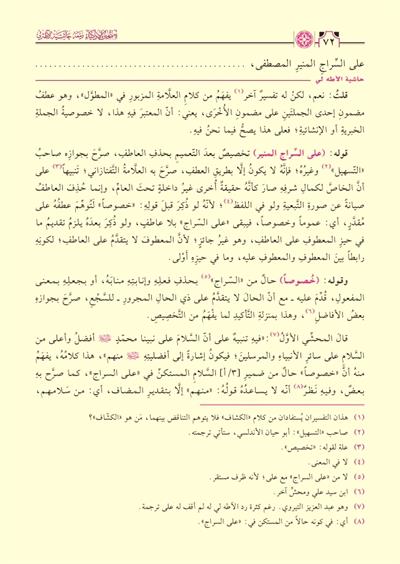 ٧٢
على السِّراجِ المنيرِ المصطفى،
حاشية الأطه لي
قلتُ: نعم، لكنْ له تفسيرٌ آخر(١) يفهَمُ من كلامِ العلَّامةِ المزبورِ في «المطوَّل»، وهو عطفُ
مضمونِ إحدى الجملتَينِ على مضمونِ الأُخْرَى، يعني: أنَّ المعتبَرَ فيه هذا، لا خصوصيةُ الجملةِ
الخبريةِ أو الإنشائيةِ؛ فعلى هذا يصحُّ فيما نحنُ فيه.
قوله: (على السِّراجِ المنير) تخصيصٌ بعدَ التَّعميمِ بحذفِ العاطفِ، صرَّحَ بجوازِه صاحبُ
«التَّسهيل»(٢) وغيرُهُ؛ فإنَّه لا يكونُ إلَّا بطريقِ العطف، صرَّح به العلَّامةُ التَّفتازاني؛ تَنبيهاً(٣) على
أنَّ الخاصَّ لكمالِ شرفِهِ صارَ كأنَّهُ حقيقةٌ أُخرى غيرُ داخلةٍ تحتَ العامِّ، وإنما حُذِفَ العاطفُ
صيانةً عن صورةِ التَّبعيةِ ولو في اللفظِ(٤)؛ لأنَّهُ لو ذُكِرَ قبلَ قولِهِ: «خصوصاً» لَتُوُهِّمَ عطفُهُ على
مُقدَّرٍ، أي: عموماً وخصوصاً، فيبقى «على السّراج» بلا عاطفٍ، ولو ذُكِرَ بعدَهُ يلزمُ تقديمُ ما
في حيزِ المعطوفِ على العاطفِ، وهو غيرُ جائزٍ؛ لأنَّ المعطوفَ لا يتقدَّمُ على العاطف؛ لكونِهِ
رابطاً بينَ المعطوفِ والمعطوفِ عليه، وما في حيزِهِ أَوْلى.
وقوله: (خُصوصاً) حالٌ من «السِّراج»(٥) بحذفِ فعلِهِ وإنابتِهِ منابَهُ، أو بجعلِهِ بمعنى
المفعولِ، قُدِّمَ عليه ـ مع أنَّ الحالَ لا يتقدَّمُ على ذي الحالِ المجرورِ ـ للسَّجْعِ، صرَّحَ بجوازِهِ
بعضُ الأفاضلِ(٦)، وهذا بمنزلةِ التَّأكيدِ لما يفْهَمُ من التَّخصيصِ.
قالَ المحشّي الأوَّلُ(٧): «فيهِ تنبيهٌ على أنَّ السَّلامَ على نبينا محمّدٍ ﷺ أفضلُ وأعلى من
السَّلامِ على سائرِ الأنبياءِ والمرسلينَ؛ فيكونُ إشارةً إلى أفضليتِهِ ﷺ منهم»، هذا كلامُهُ، يفهَمُ
منهُ أنَّ «خصوصاً» حالٌ من ضميرِ [٣/ أ] السَّلامِ المستكنِّ في «على السراج»، كما صرَّحَ به
بعضٌ، وفيهِ نَظَرٌ(٨) أنّه لا يساعدُهُ قولُهُ: «منهم» إلَّا بتقديرِ المضاف، أي: من سَلامِهم،
(١) هذان التفسيران يُستفادان من كلام «الكشاف» فلا يتوهم التناقض بينهما، مَن هو «الكشّاف»؟
(٢) صاحب «التسهيل»: أبو حيان الأندلسي، ستأتي ترجمته.
(٣) علة لقوله: «تخصيص».
(٤) لا في المعنى.
(٥) لا من «على السراج» مع على؛ لأنه ظرف مستقر.
(٦) ابن سيد علي ومحشٍّ آخر.
(٧) وهو عبد العزيز التيروي. رغم كثرة رد الأطه لي له لم أقف له على ترجمة.
(٨) أي: في كونه حالاً من المستكن في: «على السراج».